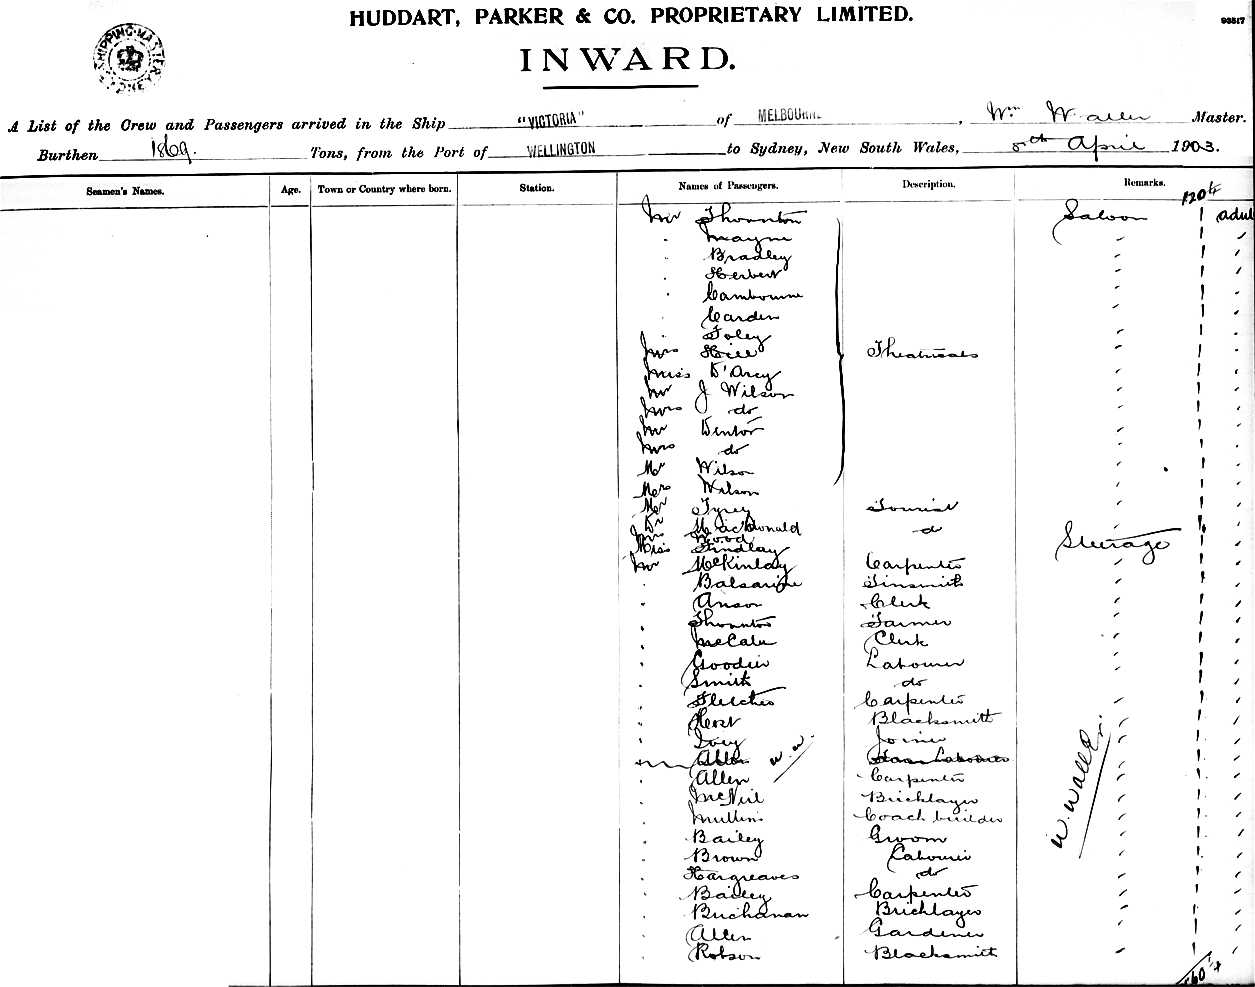 HUDDART, PARKER & CO. PROPRIETARY LIMITED.
93517
INWARD.
SHIPPING MASTER
A List of the Crew and Passengers arrived in the Ship "VICTORIA" of MELBOURNE, Wm Waller Master.
Burthen 1869. Tons, from the Port of WELLINGTON to Sydney, New South Wales, 8th April 1903.
Seamen's Names. Age. Town or Country where born. Station. Names of Passengers. Description. Remarks.
Mr Thornton Saloon 1 adult
Bradley
Herbert
Cambourne
Carden
Foley
Mrs Hill Theatricals
Miss D'Arcy
Mr J Wilson
Mrs do
Mr Denton
Mrs do
Mr Wilson
Mrs Wilson
Mr Tyrey Tourist
Dr MacDonald d
Mrs Wood Steerage
Miss Findlay
Mr McKinlay Carpenter
Tinsmith
Anson Clerk
Thornton Farmer
McCabe Clerk
Goodin Labourer
Smith do
Fletcher Carpenter
Blacksmith
Ivey Joiner
Allen W.W. Labourer
Allen Carpenter
McNeil Bricklayer
Mullins Coach builder
Bailey Groom
Brown Labourer
Hargreaves do
Bailey Carpenter
Buchanan Bricklayer
Allen Gardener
Robson Blacksmith
W. Waller